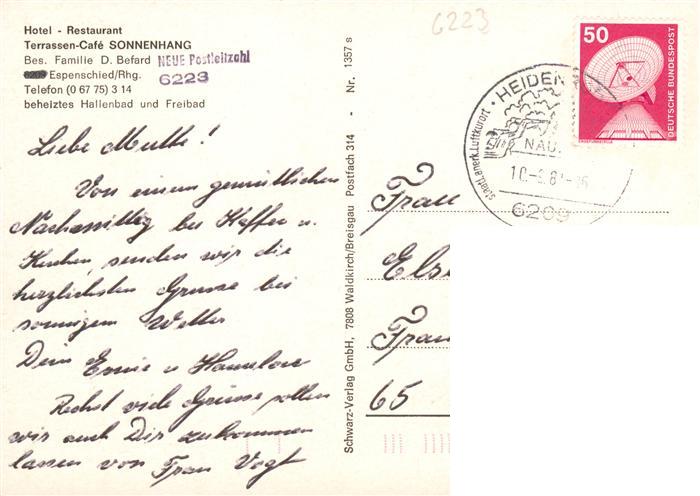 Hotel - Restaurant
Terrassen-Café SONNENHANG
Bes. Familie D. Befard
Espenschied/Rhg.
Telefon (0 67 75) 3 14
beheiztes Hallenbad und Freibad
NEUE Postleitzahl
6223
6223
Schwarz-Verlag GmbH, 7808 Waldkirch/Breisgau Postfach 314 - Nr. 1357 s
50
DEUTSCHE BUNDESPOST
HEIDEN
staatl. anerk. Luftkurort
NAU
6209
Liebe Mutti!
Von einem gemütlichen
Nachmittag bei Kaffee u.
Kuchen, senden wir die
herzlichsten Grüsse bei
sonnigem Wetter
Dein Ernie u Hannelore
Recht viele Grüsse sollen
wir auch Dir zukommen
lassen von Frau Vogt
Frau
Els
Fran
65